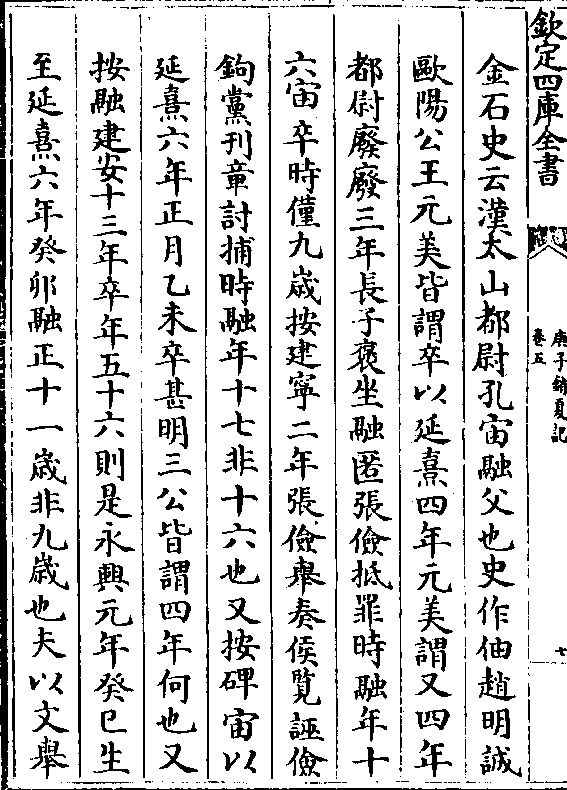 欽定四庫全書
庚子銷夏記
卷五
七
金石史云漢太山都尉孔宙融父也史作伷趙明誠
歐陽公王元美皆謂卒以延熹四年元美謂又四年
都尉廢廢三年長子褒坐融匿張儉抵罪時融年十
六宙卒時僅九歲按建寧二年張儉舉奏侯覽誣儉
鉤黨刊章討捕時融年十七非十六也又按碑宙以
延熹六年正月乙未卒甚明三公皆謂四年何也又
按融建安十三年卒年五十六則是永興元年癸巳生
至延熹六年癸卯融正十一歲非九歲也夫以文舉